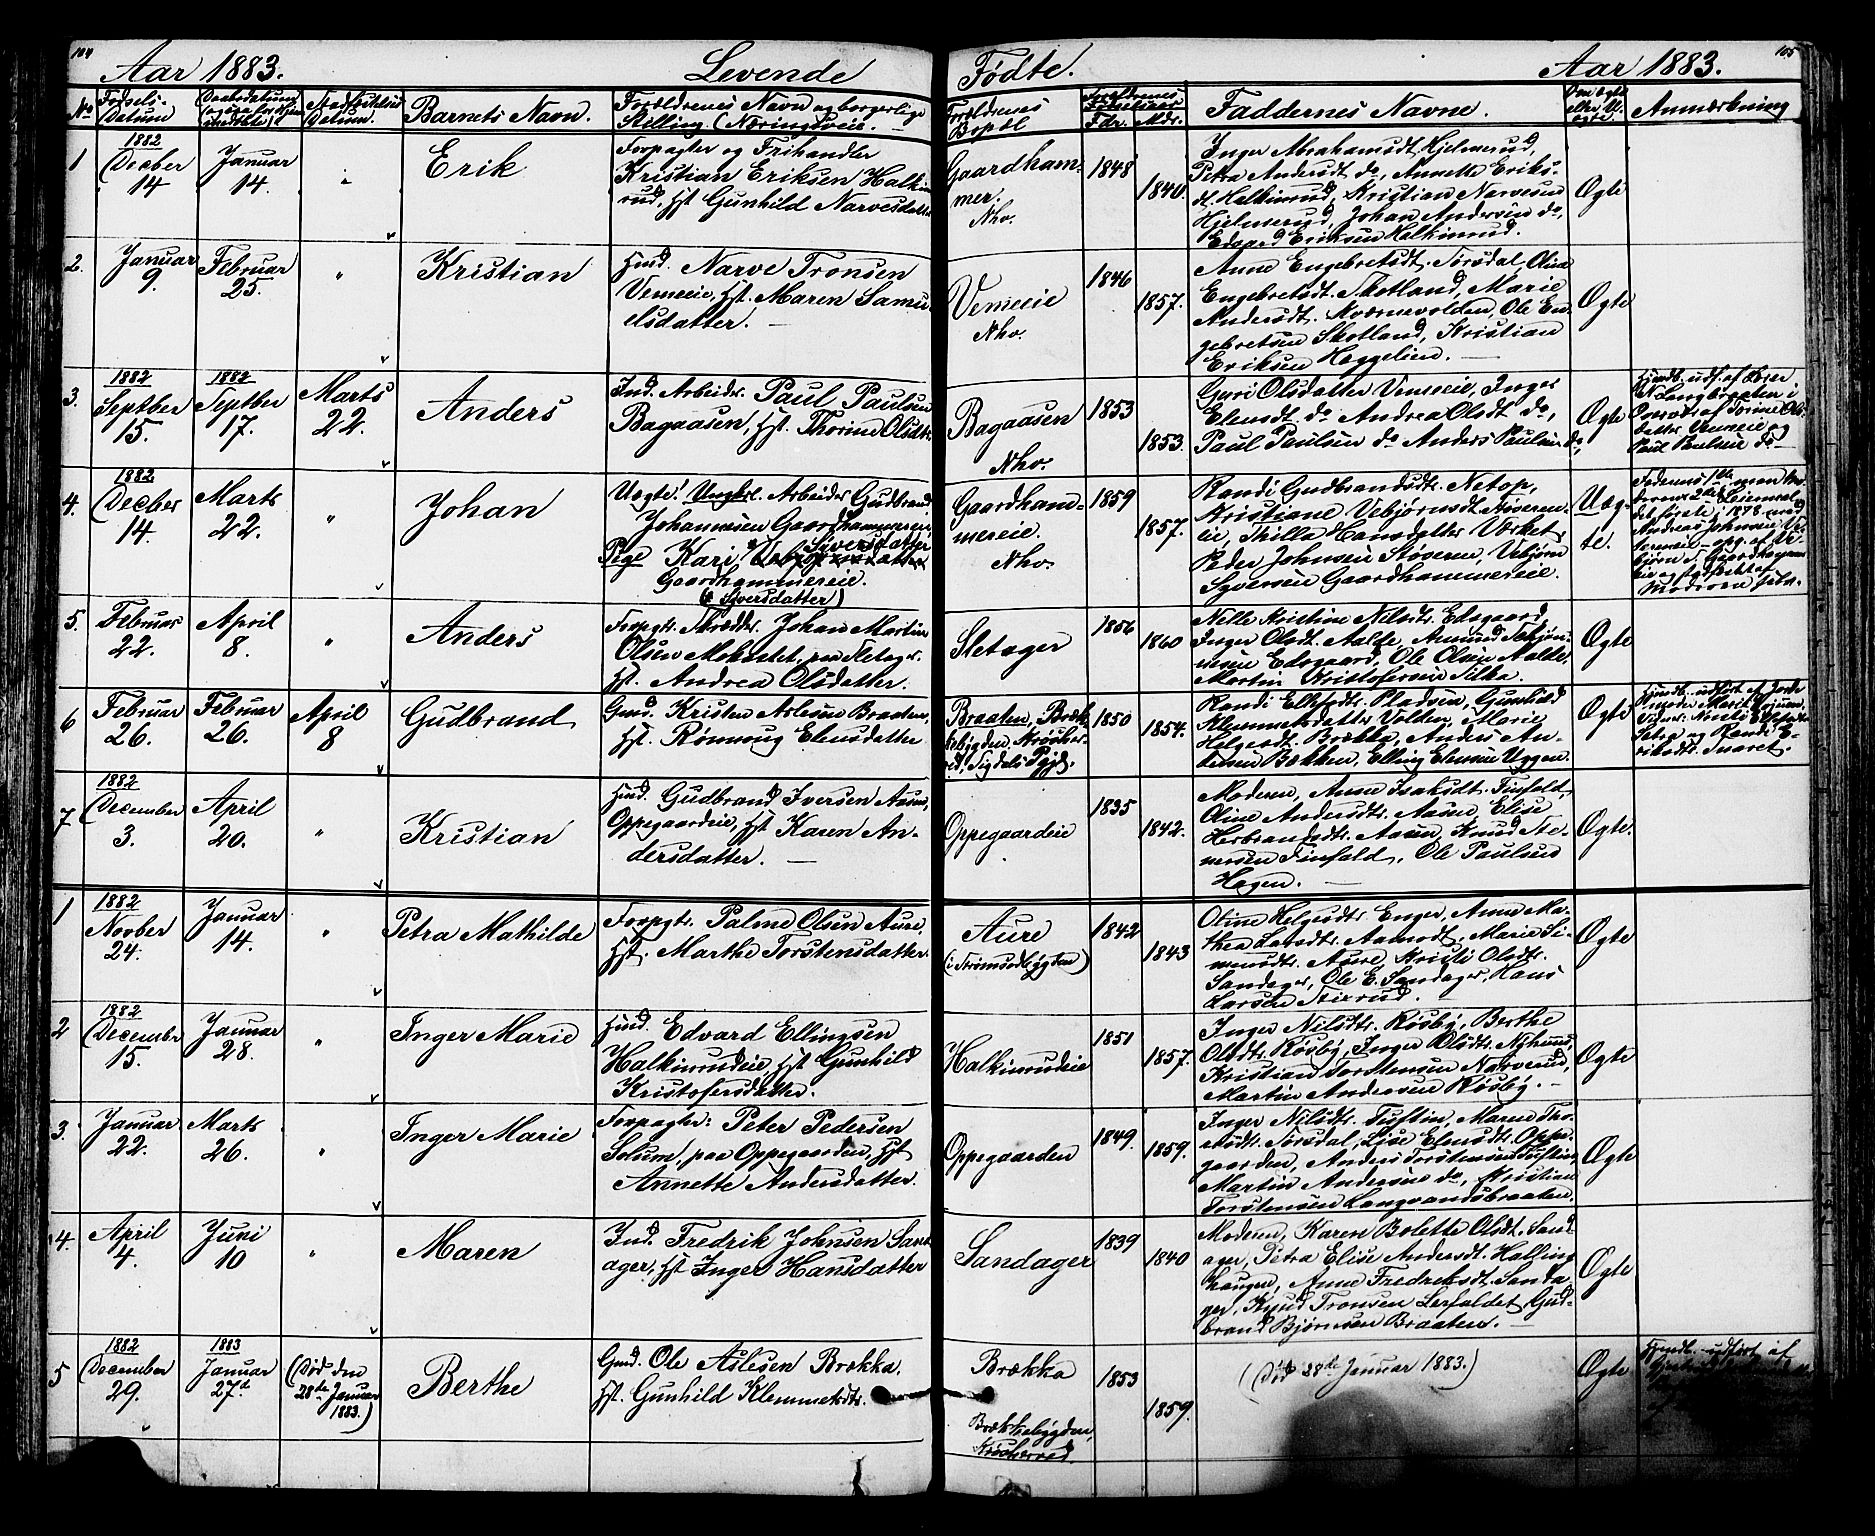 104
Aar 1883.
Levende
Fødte.
Aar 1883.
105
No
Fødsels-
Datum
Daabsdatum
Stadfæstelses
Datum.
Barnets Navn.
Forældrenes Navn og borgerlige
Stilling (Næringsveie.
Forældrenes
Bopæl
Forældrenes
Fødselsaar
Fdr. Mdr.
Faddernes Navne.
Om Ægte
eller U-
ægte.
Anmærkning
1
1882
Decber
14
Januar
14.
"
Erik
Forpagter og Frihandler
Kristian Eriksen Halkin-
rud, Hst Gunhild Narvesdatter
Gaardham-
mer.
Nho.
1848
1840.
Inger Abrahamsdt. Hjelmerud,
Petra Andersdt do, Annette Eriks-
dt. Halkinrud, Kristian Narvesen
Hjelmerud, Johan Andersen do,
Edvard Eriksen Halkinrud.
Ægte
2.
Januar
9.
Februar
25.
"
Kristian
Hmd. Narve Tronsen
Vemeeie, Hst. Maren Samu-
elsdatter.
Vemeeie
Nho.
1846
1857.
Anne Engebretsdt. Torsdal, Oline
Engebretsdt. Skotland, Marie
Andersdt. Kværnevolden, Ole En-
gebretsen Skotland, Kristian
Eriksen Haggelien.
Ægte
3.
1882
Septber
15.
1882
Septber
17.
Marts
22.
Anders
Ind. Arbeidr. Paul Paulsen
Bagaasen, Hst. Thorine Olsdtr.
Bagaasen
Nho.
1853
1853.
Guri Olsdatter Vemeeie, Inger
Elensdt do Andrea Olsdt do,
Paul Paulsen do Anders Paulsen do,
Ægte
Hjmdb. udf. af Lærer
Langbraaten i
Overvær af Torine Ols-
datter Vemeeie og
Paul Paulsen do
4.
1882
Decber
14.
Marts
22.
"
Johan
Uægte! Ungkrl. Arbeider Gudbrand
Johannesen Gaardhammereie,
Pige Kari Siversdatter
Gaardhammereie.
(Siversdatter)
Gaardham-
mereie.
Nho.
1859
1857.
Randi Gudbrandsdt. Netop,
Kristiane Vebjørnsdt. Støveren-
eie, Thilla Hansdatter Værket
Peder Johnsen Støveren, Vebjørn
Syversen Gaardhammereie.
Uæg-
te.
Faderens 1ste men Mo-
derens 2det Leiermaal
det første i 1878 med
5.
Februar
22.
April
8.
"
Anders
Forpgtr. Skrædder. Johan Martin
Olsen Mokastet, paa Sletager.
Hst. Andrea Olsdatter.
Sletager
1856
1860
Nille Kristine Nilsdt. Edsgaard,
Inger Olsdt. Aalde, Amund Tobjøn-
nesen Edsgaard, Ole Olsen Aalde,
Martin Kristofersen Silka.
Ægte
6
Februar
26.
Februar
26.
April
8
Gudbrand
Gmd. Kristen Aslesen Braaten,
Hst. Rønnoug Elensdatter
Braaten, Bræk-
kebygden, Krødshe-
red, Sigdals Pgjd.
1850
1854.
Randi Ellefsdt. Pladsen, Gunhild
Klemmetsdatter Volden, Marie
Helgesdt. Brækka, Anders An-
dersen Bækken, Elling Elensen Uggen.
Ægte
Hjmdb. udført af Jorde-
moder
7
1882
December
3.
April
20.
"
Kristian
Hmd. Gudbrand Iversen Aasen,
Oppegaardeie, Hst Karen An-
dersdatter.
Oppegaardeie
1835
1842.
Moderen, Anne Isaksdt. Finfald,
Oline Andersdt. Aasen, Elise
Herbrandsdt. Aasen, Knud Ste-
nersen Finfald, Ole Paulsen
Hagen.
Ægte.
1
1882
Novber
24.
Januar
14.
"
Petra Mathilde
Forpgtr. Palme Olsen Aure,
Hst. Marthe Torstensdatter.
Aure
(i Strømsodbygden)
1842
1843
Oline Helgesdtr. Enger, Anne Ma-
thea Larsdt. Aamodt, Marie Si-
mensdt. Aure, Kristi Olsdt.
Sandager, Ole E. Sandager, Hans
Larsen Steirud.
Ægte
2
1882
December
15.
Januar
28.
"
Inger Marie
Hmd. Edvard Ellingsen
Halkinrudeie, Hst Gunhild
Kristofersdatter.
Halkinrudeie
1851
1857.
Inger Nilsdt. Røsby, Berthe
Olsdt. Røsby, Inger Olsdt.
Kristian Torstensen Narverud,
Martin Andersen Røsby.
Ægte
3.
Januar
22.
Marts
26.
"
Inger Marie
Forpagter: Peter Pedersen
Solum, paa Oppegaarden, Hst
Annette Andersdatter.
Oppegaarden
1849.
1859.
Inger Nilsdt. Tuftin, Maren Tho-
resdt. Torsdal, Lise Elensdt. Oppe-
gaarden, Anders Torstensen Tuftin,
Martin Andersen do, Kristian
Torstensen Langvandsbraaten.
Ægte
4.
April
4.
Juni
10
"
Maren
Ind. Fredrik Johnsen Sand-
ager, Hst Inger Hansdatter
Sandager
1839
1840
Moderen, Karen Bolette Olsdt. Sand-
ager, Petra Elise Andersdt. Halling-
haugen, Anne Fredriksdt. Sanda-
ger, Knud Tronsen Lerfaldet, Gud-
brand Bjørnsen Braaten.
Ægte
5
1882
December
29.
1883
Januar
27de
(Død den
28de Januar
1883.)
Berthe
Gmd. Ole Aslesen Brækka.
Hst. Gunhild Klemmetsdtr.
Brækka
Brækkebygden,
Krødshered.
1853
1859.
(Død 28de Januar 1883.)
Ægte
Hjemdb. udført af